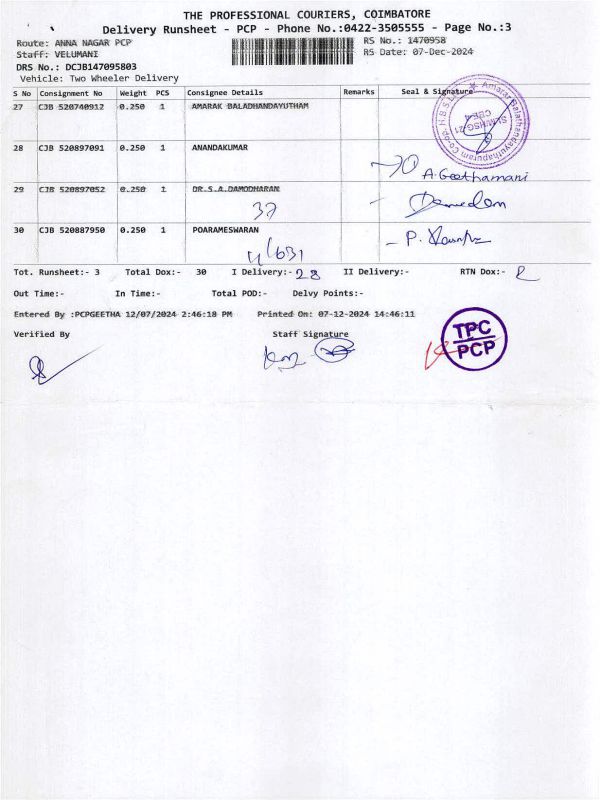 THE PROFESSIONAL COURIERS, COIMBATORE
Delivery Runsheet - PCP - Phone No.:0422-3505555 - Page No.:3
Route: ANNA NAGAR PCP RS No.: 1470958
Staff: VELUMANI RS Date: 07-Dec-2024
DRS No.: DCJB147095803
Vehicle: Two Wheeler Delivery
S No Consignment No Weight PCS Consignee Details Remarks Seal & Signature
27 CJB 520740912 0.250 1 AMARAK BALADHANDAYUTHAM
28 CJB 520897091 0.250 1 ANANDAKUMAR
A. Geethamani
29 CJB 520897052 0.250 1 DR.S.A.DAMODHARAN
37
30 CJB 520887950 0.250 1 POARAMESWARAN
4/631
Tot. Runsheet:- 3 Total Dox:- 30 I Delivery:- 28 II Delivery:- RTN Dox:- 2
Out Time:- In Time:- Total POD:- Delvy Points:-
Entered By :PCPGEETHA 12/07/2024 2:46:18 PM Printed On: 07-12-2024 14:46:11
Verified By Staff Signature
TPC
PCP